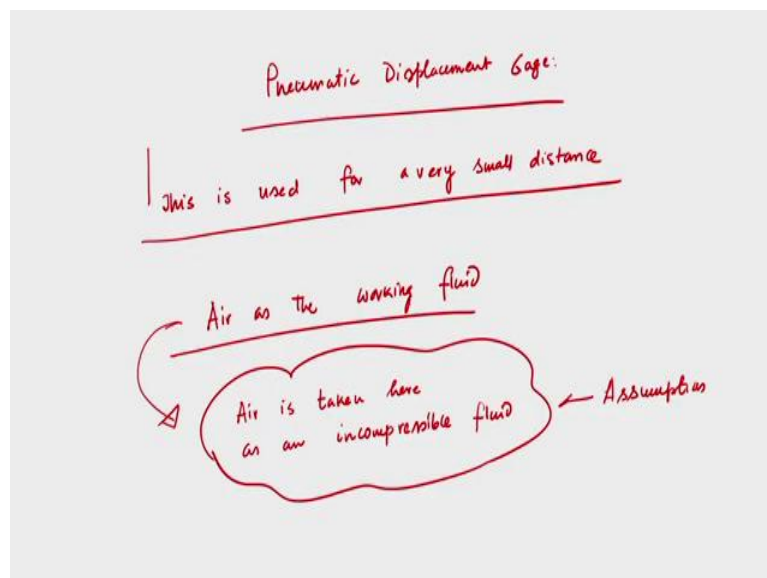 Pneumatic Displacement Gage:
This is used for a very small distance
Air as the working fluid
Air is taken here
as an incompressible fluid
Assumption